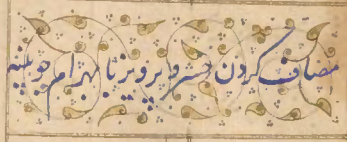 مصاف کردن خسرو پرویز با بهرام چوبینه